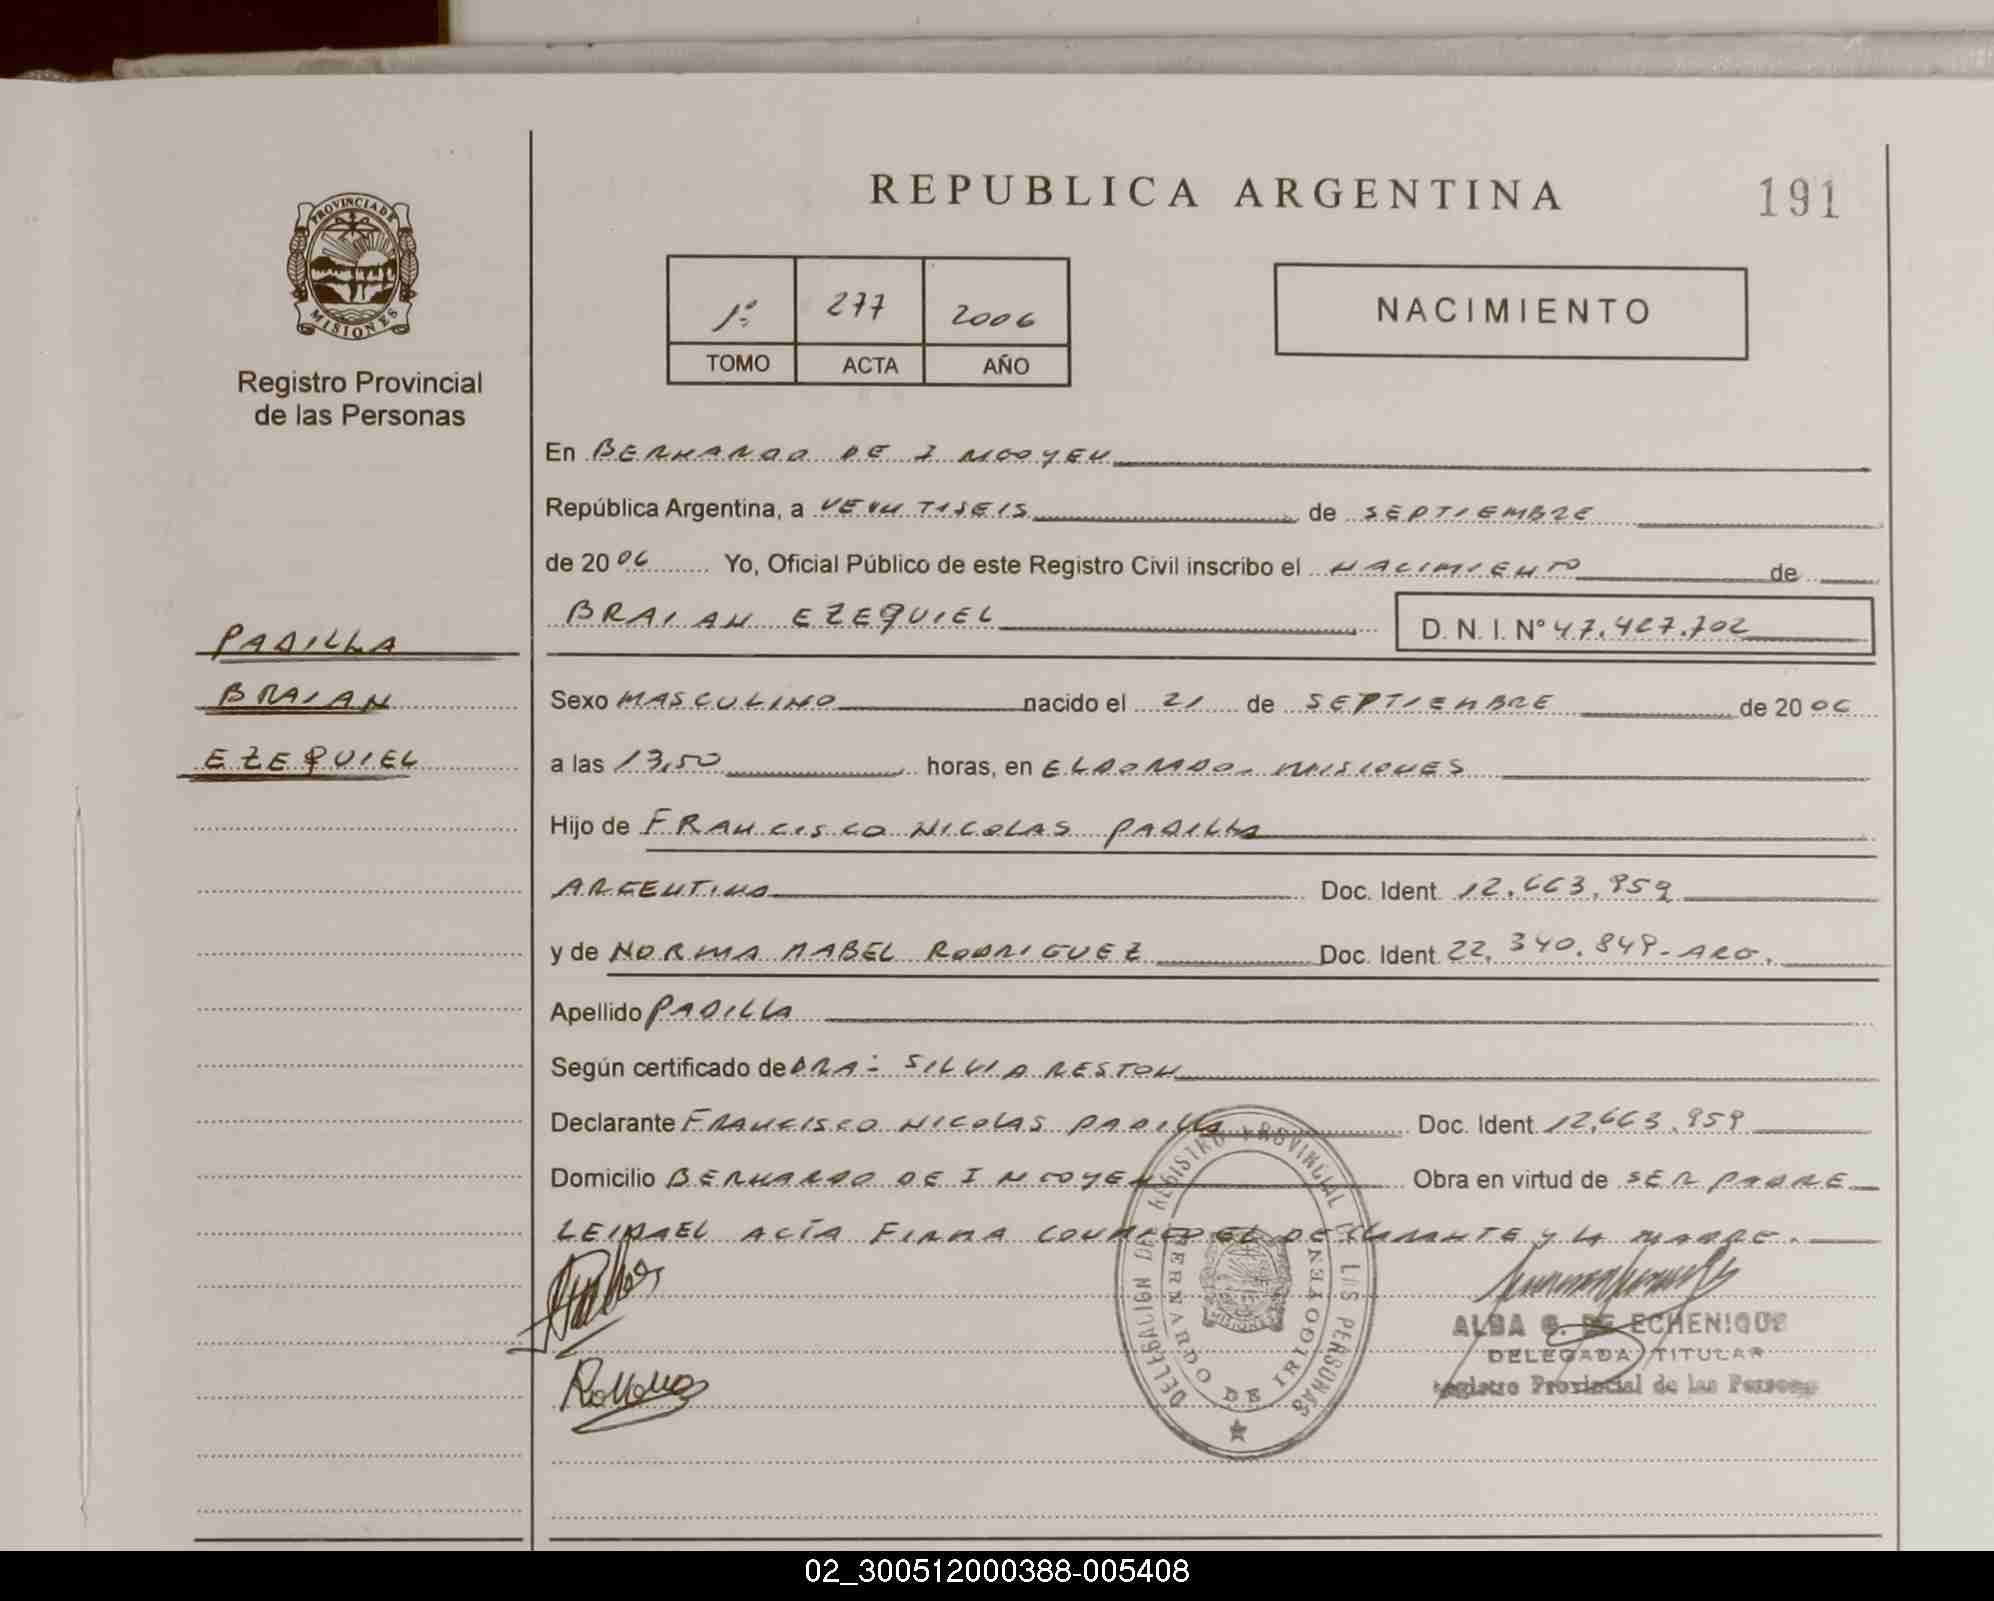 PROVINCIA DE
MISIONES
Registro Provincial
de las Personas
REPUBLICA ARGENTINA
191
1º 277 2006
TOMO ACTA AÑO
NACIMIENTO
En BERNARDO DE IRIGOYEN
República Argentina, a VEINTISEIS de SEPTIEMBRE
de 2006 Yo, Oficial Público de este Registro Civil inscribo el NACIMIENTO de
BRAIAN EZEQUIEL
D. N. I. Nº 47.427.702
PADILLA
BRAIAN
EZEQUIEL
Sexo MASCULINO nacido el 21 de SEPTIEMBRE de 2006
a las 13,50 horas, en ELDORADO- MISIONES
Hijo de FRANCISCO NICOLAS PADILLA
ARGENTINO Doc. Ident. 12.663.959
y de NORMA MABEL RODRIGUEZ Doc. Ident. 22.340.849- ARG.
Apellido PADILLA
Según certificado de DRA- SILVIA RESTON
Declarante FRANCISCO NICOLAS PADILLA Doc. Ident. 12.663.959
Domicilio BERNARDO DE IRIGOYEN Obra en virtud de SER PADRE
LEIDA EL ACTA FIRMA CONMIGO EL DECLARANTE Y LA MADRE.
DELEGACION DEL REGISTRO PROVINCIAL DE LAS PERSONAS
BERNARDO DE IRIGOYEN
ALBA G. DE ECHENIQUE
DELEGADA TITULAR
Registro Provincial de las Personas
02_300512000388-005408